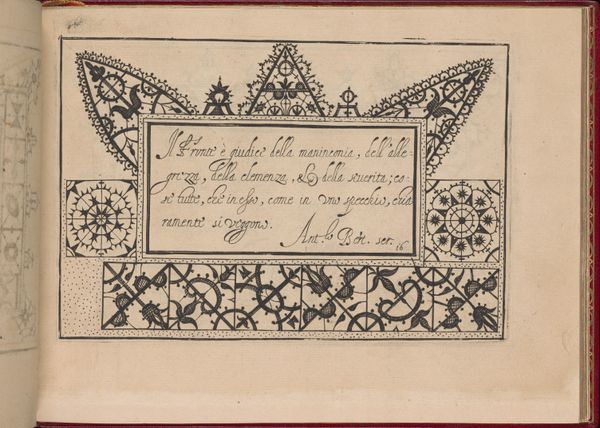 Il Fronte è giudice della maninconia, dell'alle-
grezza, della clemenza, & della seuerita; co-
se tutte, che in esso, come in vno specchio, chia-
ramente si veggono.
Ant.º ser. 16